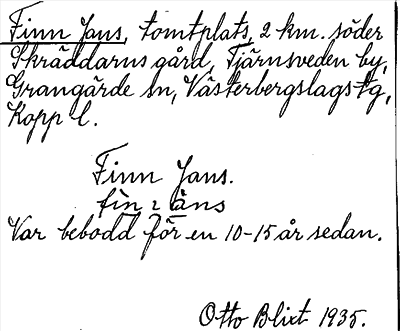 Finn Jans, tomtplats, 2 km. söder
Skräddarns gård, Tjärnsveden by,
Grangärde sn, Västerbergslags tg,
Kopp l.
Finn Jans.
fìn 2 äns
Var bebodd för en 10-15 år sedan.
Otto Blixt 1935.